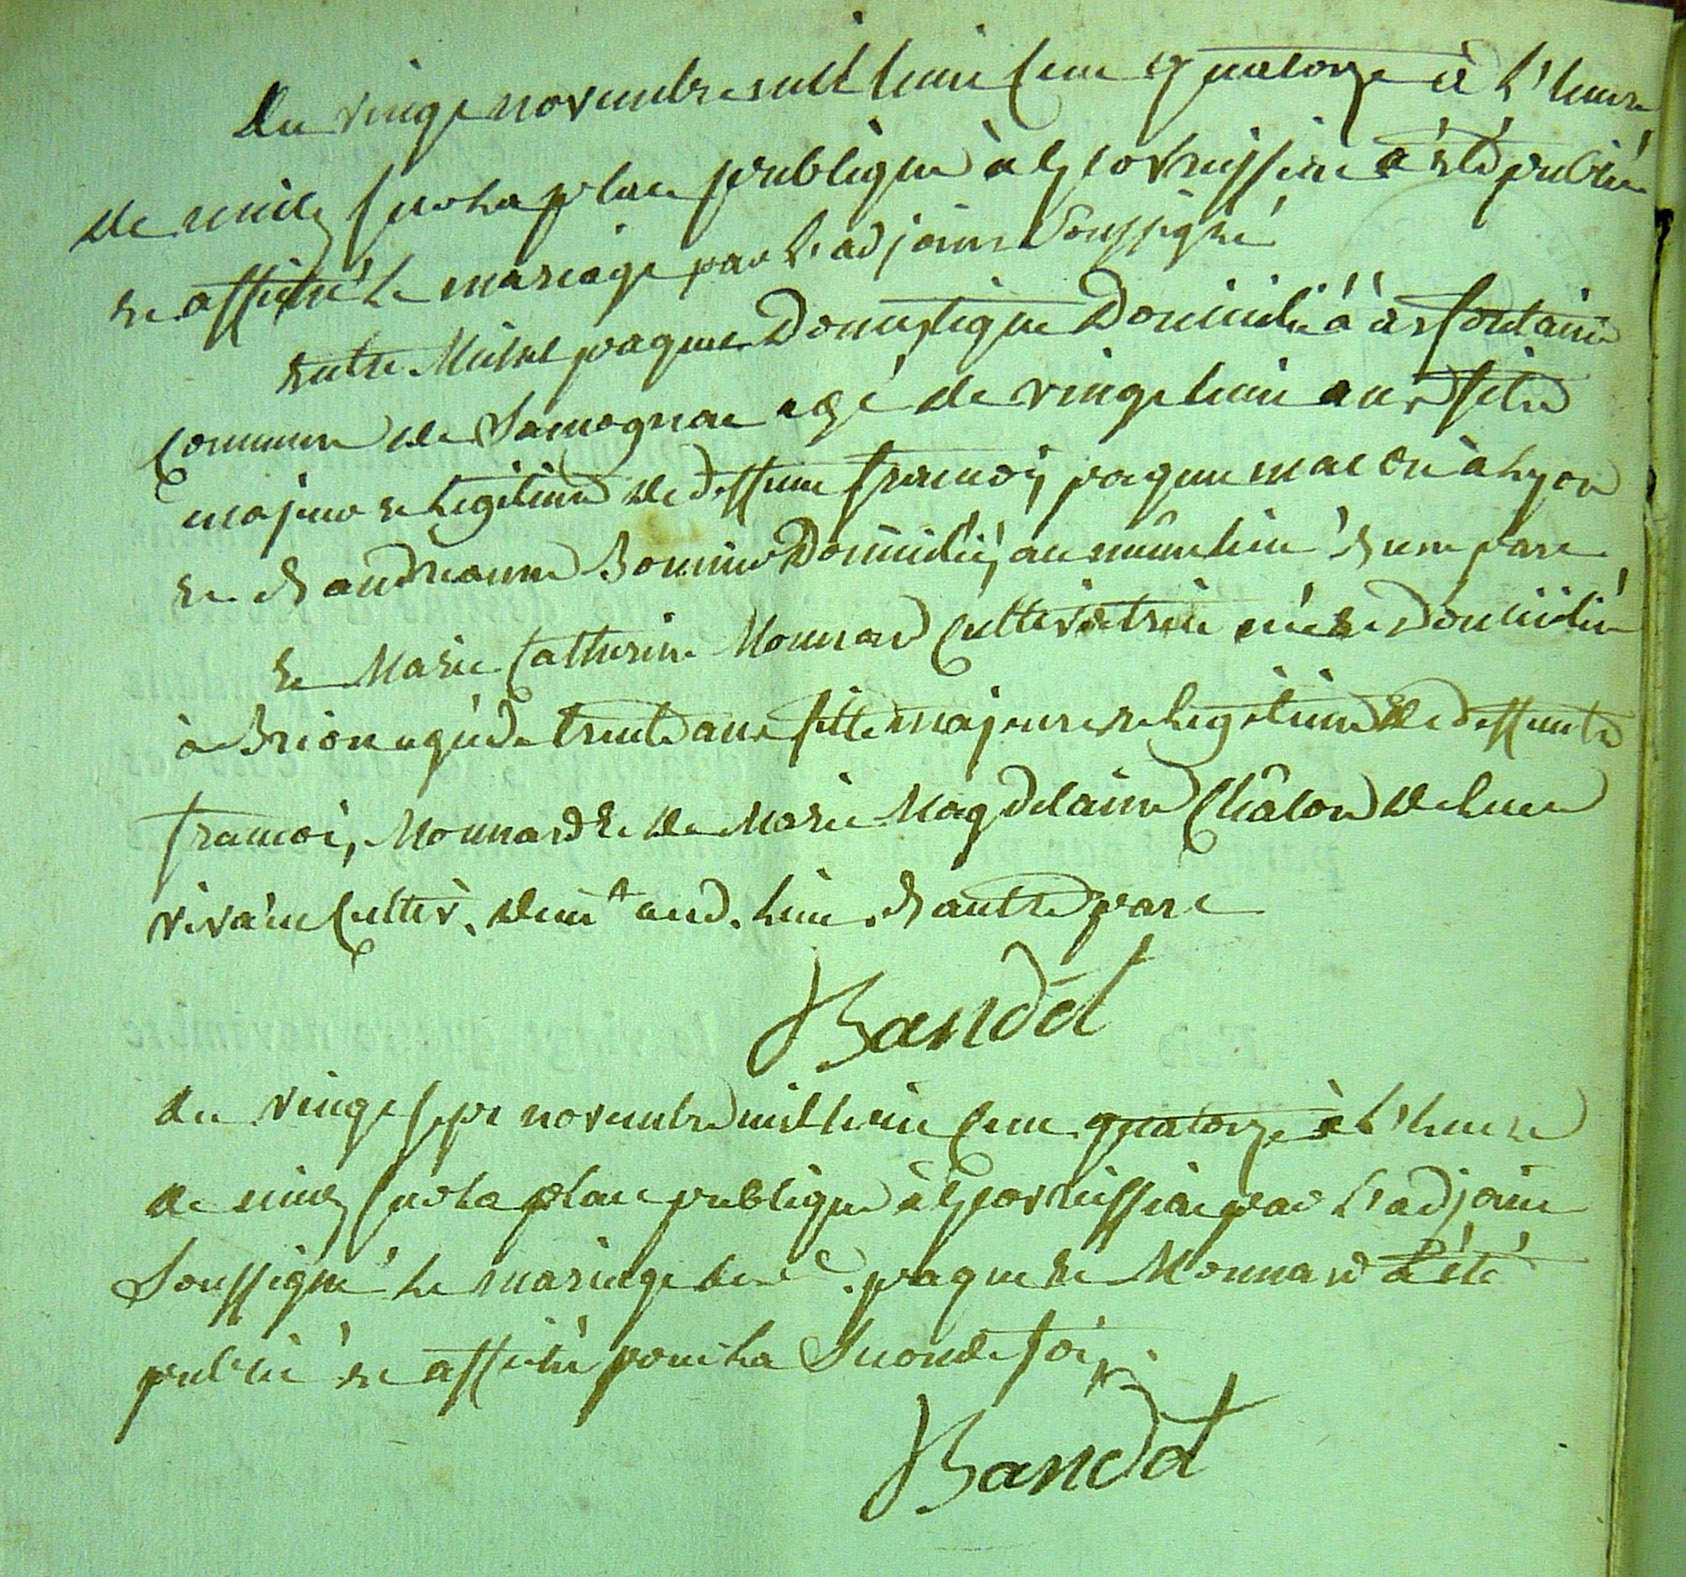 du vingt novembre mil huit cent quatorze à l'heure
de midy sur la place publique à Geovreissiat a été publié
et affiché le mariage par l'adjoint soussigné
entre Michel paquet Domestique Domicilié à
commune de Samognat agé de vingt huit ans fils
majeur et legitime de deffunt françois paquet macon à Lyon
et d'andréanne Bonnin Domiciliés au même lieu d'une part
et Marie Catherine Monnard Cultivatrice née et domiciliée
à Brion agée de trente ans fille majeure et legitime de deffunt
françois Monnard et de Marie Magdelaine Châlon de lieu
vivante Cultiv. dem.t aud. lieu d'autre part
Bandet
du vingt sept novembre mil huit cent quatorze à l'heure
de midy sur la place publique à Geovreissiat par l'adjoint
Soussigné le mariage de paquet et Monnard a été
publié et affiché pour la seconde fois.
Bandet